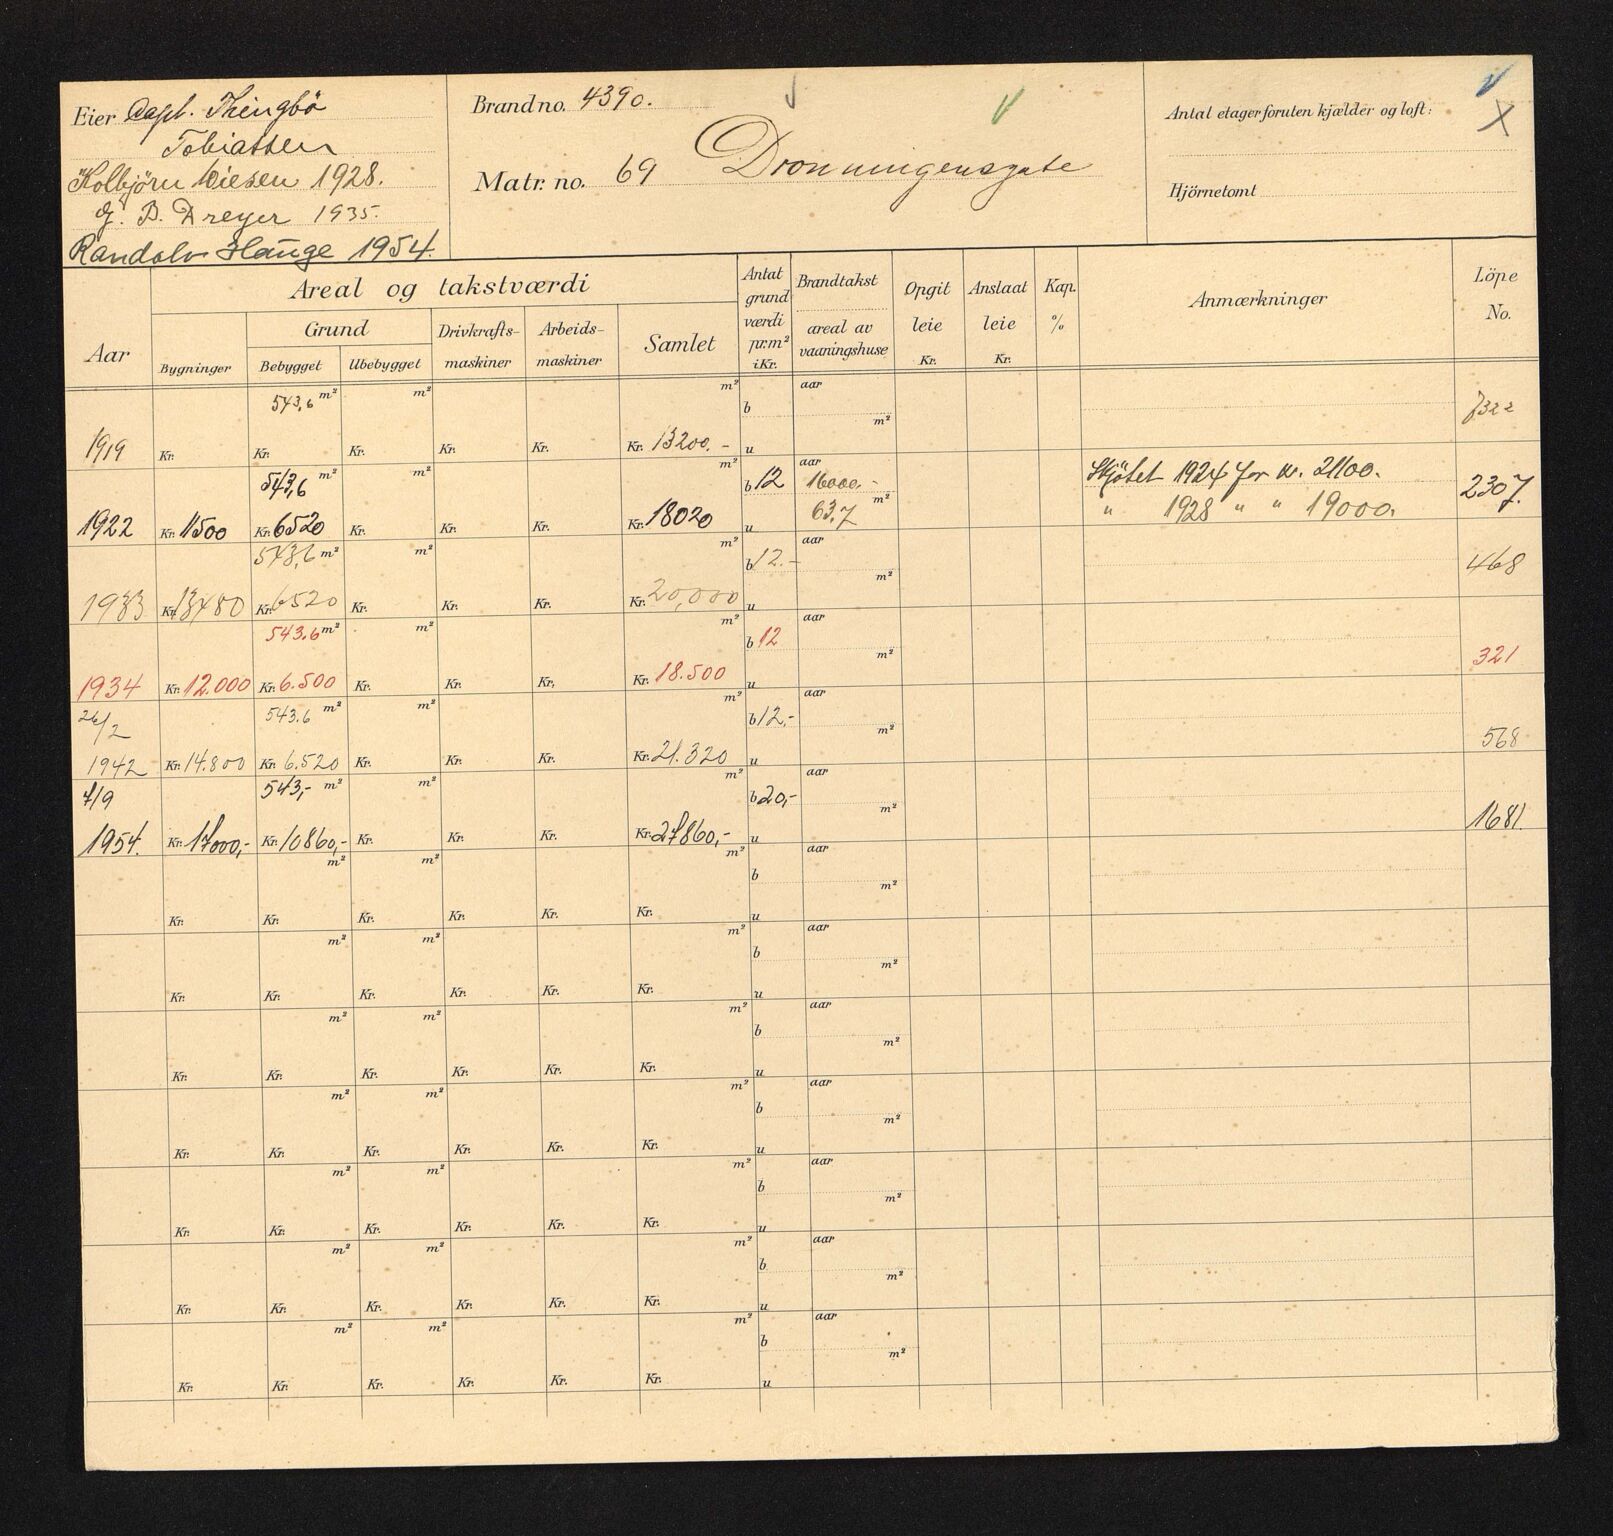 Eier Capt. Thingbö
Tobiassen
Kolbjörn Wiesen 1928.
G. B. Dreyer 1935.
Randolv Hauge 1954.
Brand no. 4390.
Matr. no. 69 Dronningensgate
Antal etager foruten kjælder og loft:
X
Hjörnetomt
Aar
Areal og takstværdi
Bygninger
Grund
Bebygget Ubebygget
Drivkrafts-maskiner
Arbeids-maskiner
Samlet
Antat grund værdi pr.m² i Kr.
Brandtakst
areal av vaaningshuse
Opgit leie Kr.
Anslaat leie Kr.
Kap. %
Anmærkninger
Löpe No.
543,6 m² m² m² b aar m² 7322
1919 Kr. Kr. Kr. Kr. Kr. Kr. 13200.- u
543,6 m² m² m² b 12 aar 16000.- m² 63,7 Skjötet 1924 for kr. 21100. 2307.
1922 Kr. 11500 Kr. 6520 Kr. Kr. Kr. Kr. 18020 u " 1928 " " 19000.
543,6 m² m² m² b 12.- aar m² 468
1933 Kr. 13480 Kr. 6520 Kr. Kr. Kr. Kr. 20,000 u
543.6 m² m² m² b 12 aar m² 321
1934 Kr. 12.000 Kr. 6.500 Kr. Kr. Kr. Kr. 18.500 u
26/2 543.6 m² m² m² b 12,- aar m² 568
1942 Kr. 14.800 Kr. 6.520 Kr. Kr. Kr. Kr. 21.320 u
7/9 543,- m² m² m² b 20,- aar m² 1681.
1954. Kr. 17000,- Kr. 10860,- Kr. Kr. Kr. Kr. 27860,- u
m² m² m² b aar m²
Kr. Kr. Kr. Kr. Kr. Kr. u
m² m² m² b aar m²
Kr. Kr. Kr. Kr. Kr. Kr. u
m² m² m² b aar m²
Kr. Kr. Kr. Kr. Kr. Kr. u
m² m² m² b aar m²
Kr. Kr. Kr. Kr. Kr. Kr. u
m² m² m² b aar m²
Kr. Kr. Kr. Kr. Kr. Kr. u
m² m² m² b aar m²
Kr. Kr. Kr. Kr. Kr. Kr. u
m² m² m² b aar m²
Kr. Kr. Kr. Kr. Kr. Kr. u